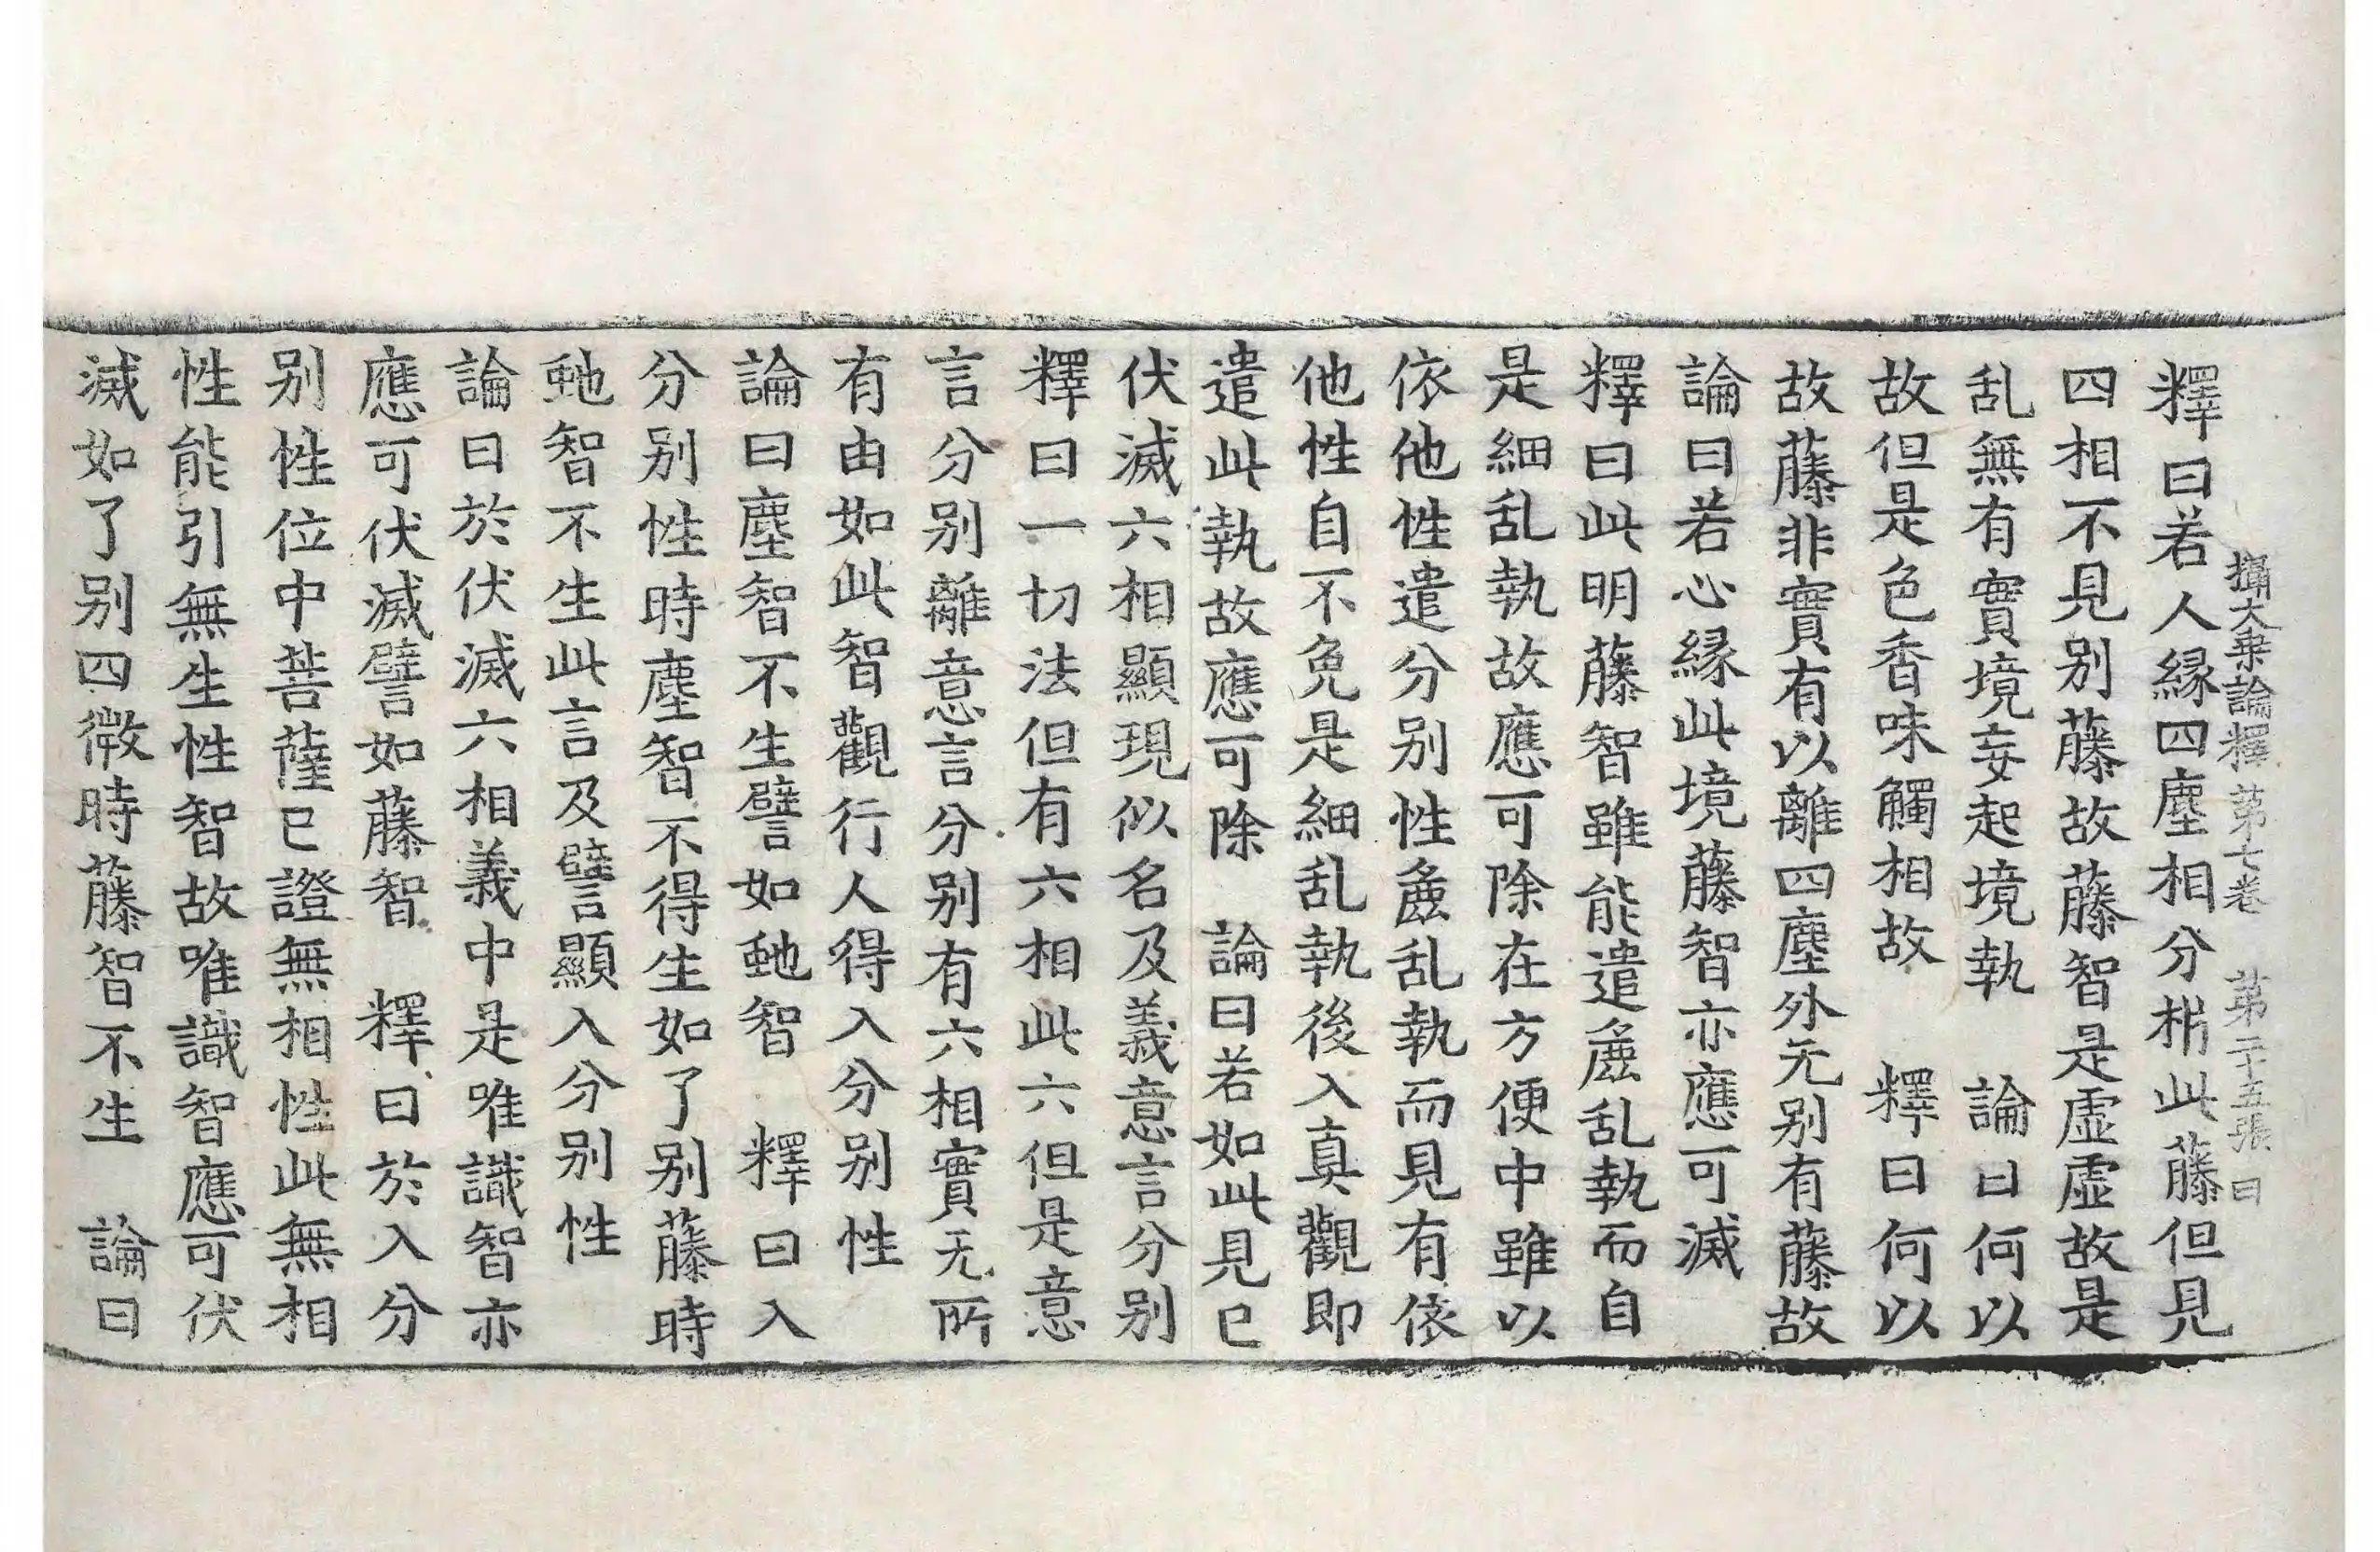 攝大乗論釋第七卷 第二十五張 曰
釋曰若人縁四塵相分析此藤但見
四相不見别藤故藤智是虚虚故是
乱無有實境妄起境執 論曰何以
故但是色香味觸相故 釋曰何以
故藤非實有以離四塵外无别有藤故
論曰若心縁此境藤智亦應可滅
釋曰此明藤智雖能遣麁乱執而自
是細乱執故應可除在方便中雖以
依他性遣分别性麁乱執而見有依
他性自不免是細乱執後入真觀即
遣此執故應可除 論曰若如此見已
伏滅六相顯現似名及義意言分别
釋曰一切法但有六相此六但是意
言分别離意言分别有六相實无所
有由如此智觀行人得入分别性
論曰塵智不生譬如虵智 釋曰入
分别性時塵智不得生如了别藤時
虵智不生此言及譬顯入分别性
論曰於伏滅六相義中是唯識智亦
應可伏滅譬如藤智 釋曰於入分
别性位中菩薩已證無相性此無相
性能引無生性智故唯識智應可伏
滅如了别四微時藤智不生 論曰